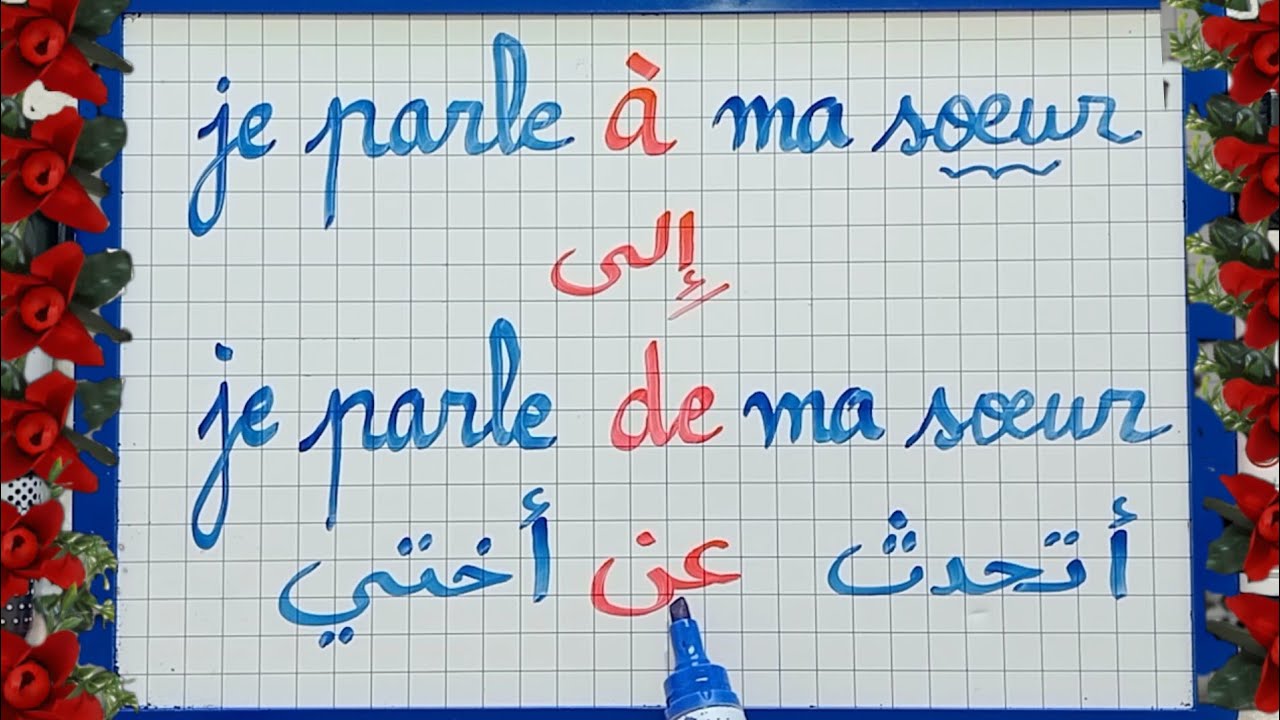 je parle à ma sœur
إلى
je parle de ma sœur
أتحدث عن أختي